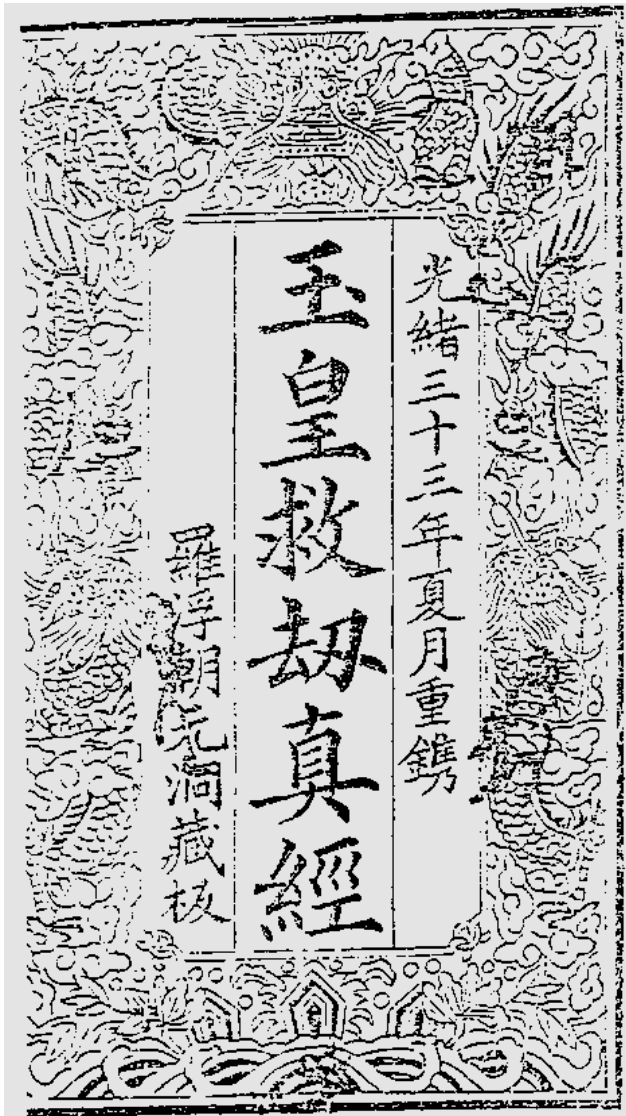 光緒三十三年夏月重鐫
玉皇救劫真經
羅浮朝元洞藏板